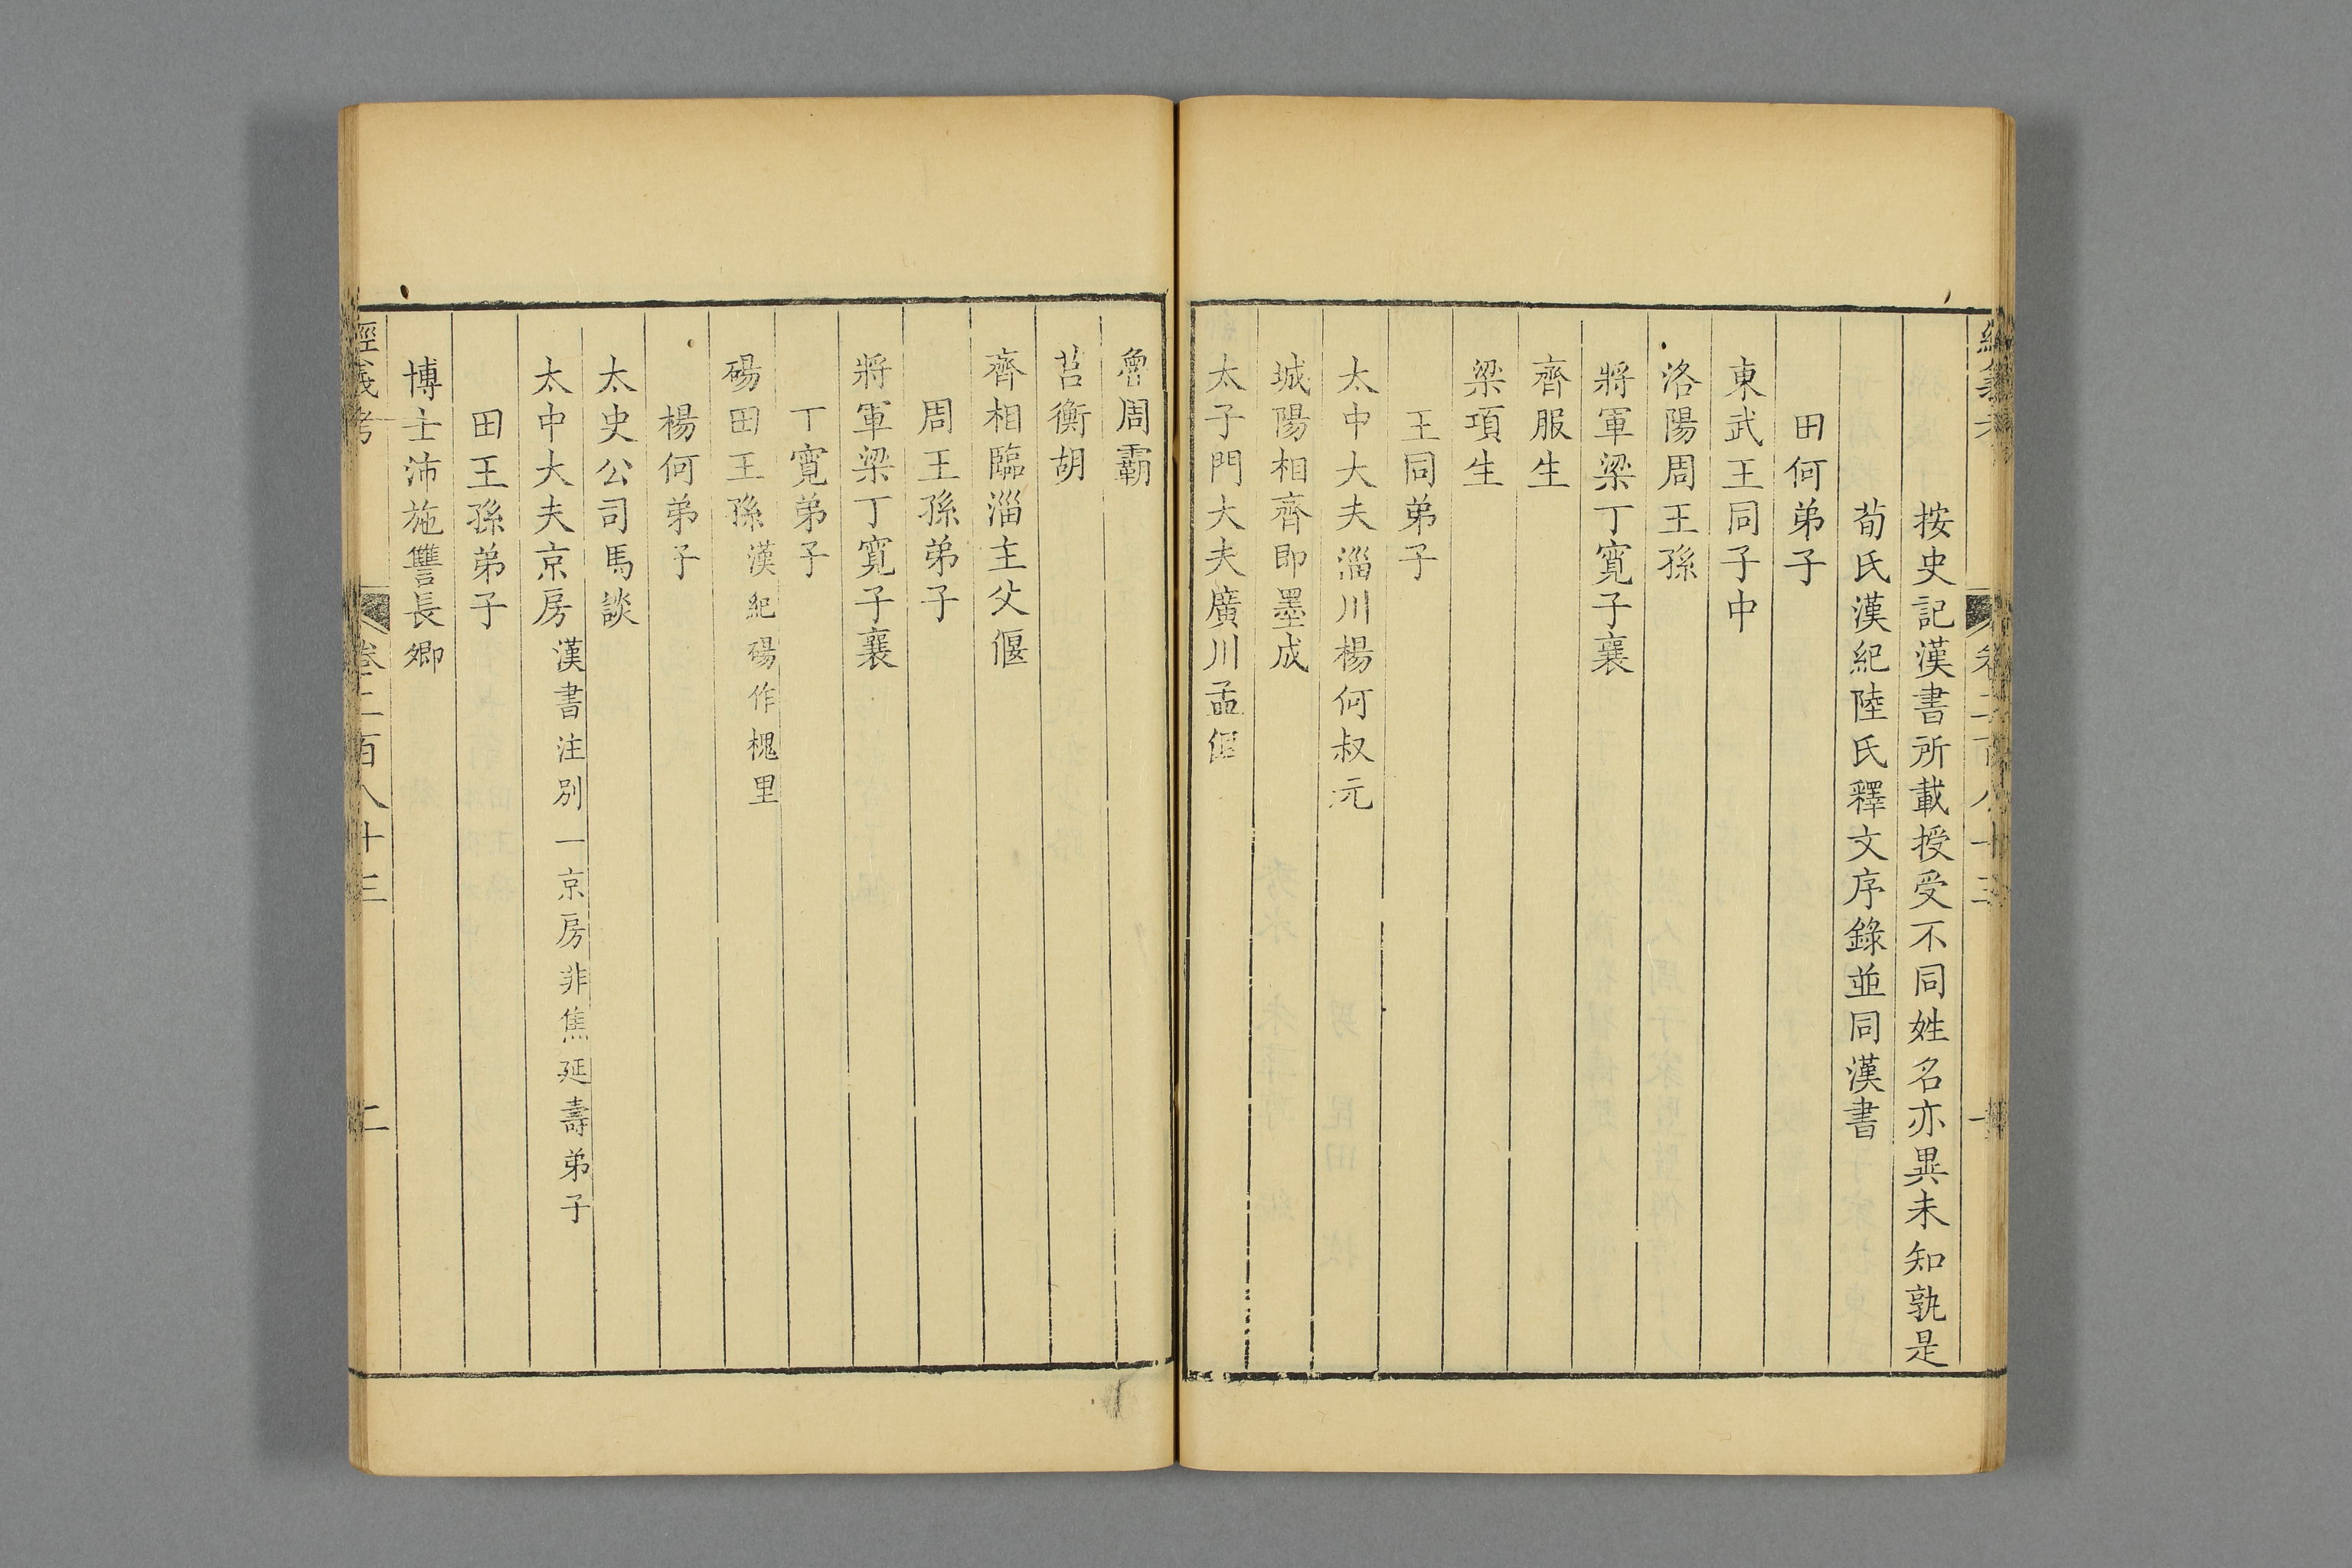 按史記漢書所載授受不同姓名亦異未知孰是
荀氏漢紀陸氏釋文序錄並同漢書
田何弟子
東武王同子中
洛陽周王孫
將軍梁丁寬子襄
齊服生
梁項生
王同弟子
太中大夫淄川楊何叔元
城陽相齊即墨成
太子門大夫廣川孟但
魯周霸
莒衡胡
齊相臨淄主父偃
周王孫弟子
將軍梁丁寬子襄
丁寬弟子
碭田王孫漢紀碭作槐里
楊何弟子
太史公司馬談
太中大夫京房漢書注別一京房非焦延壽弟子
田王孫弟子
博士沛施讐長卿
經義考 卷二百八十三 二